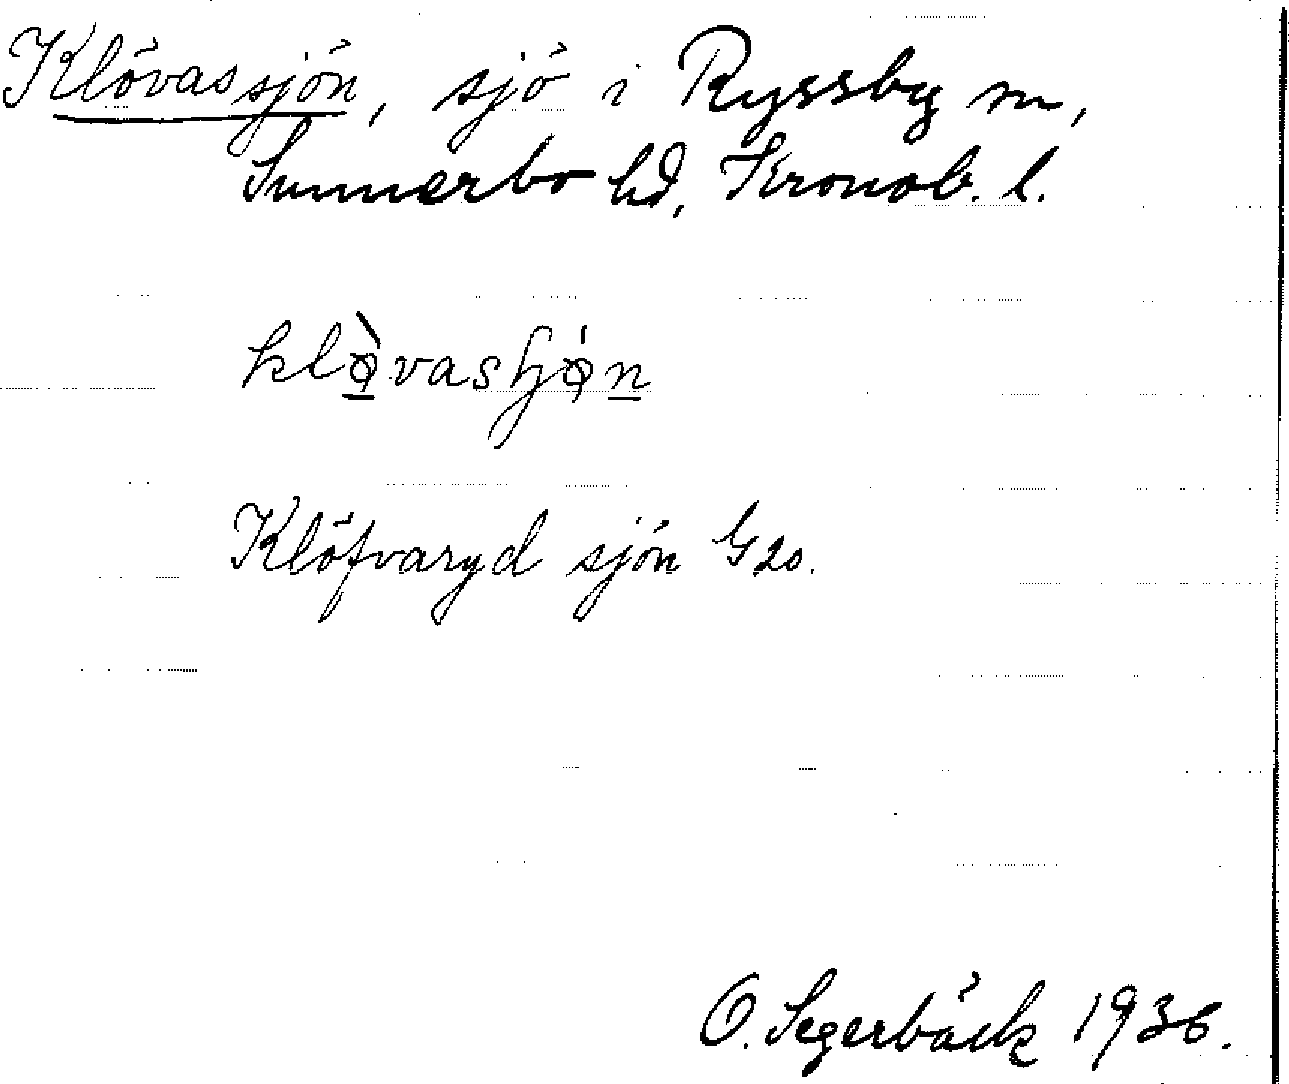 Klövassjön, sjö i Ryssby sn,
Sunnerbo hd, Kronob. l.
klø̀vasʃjǿn
Klöfvaryd sjön G20.
O. Segerbäck 1936.